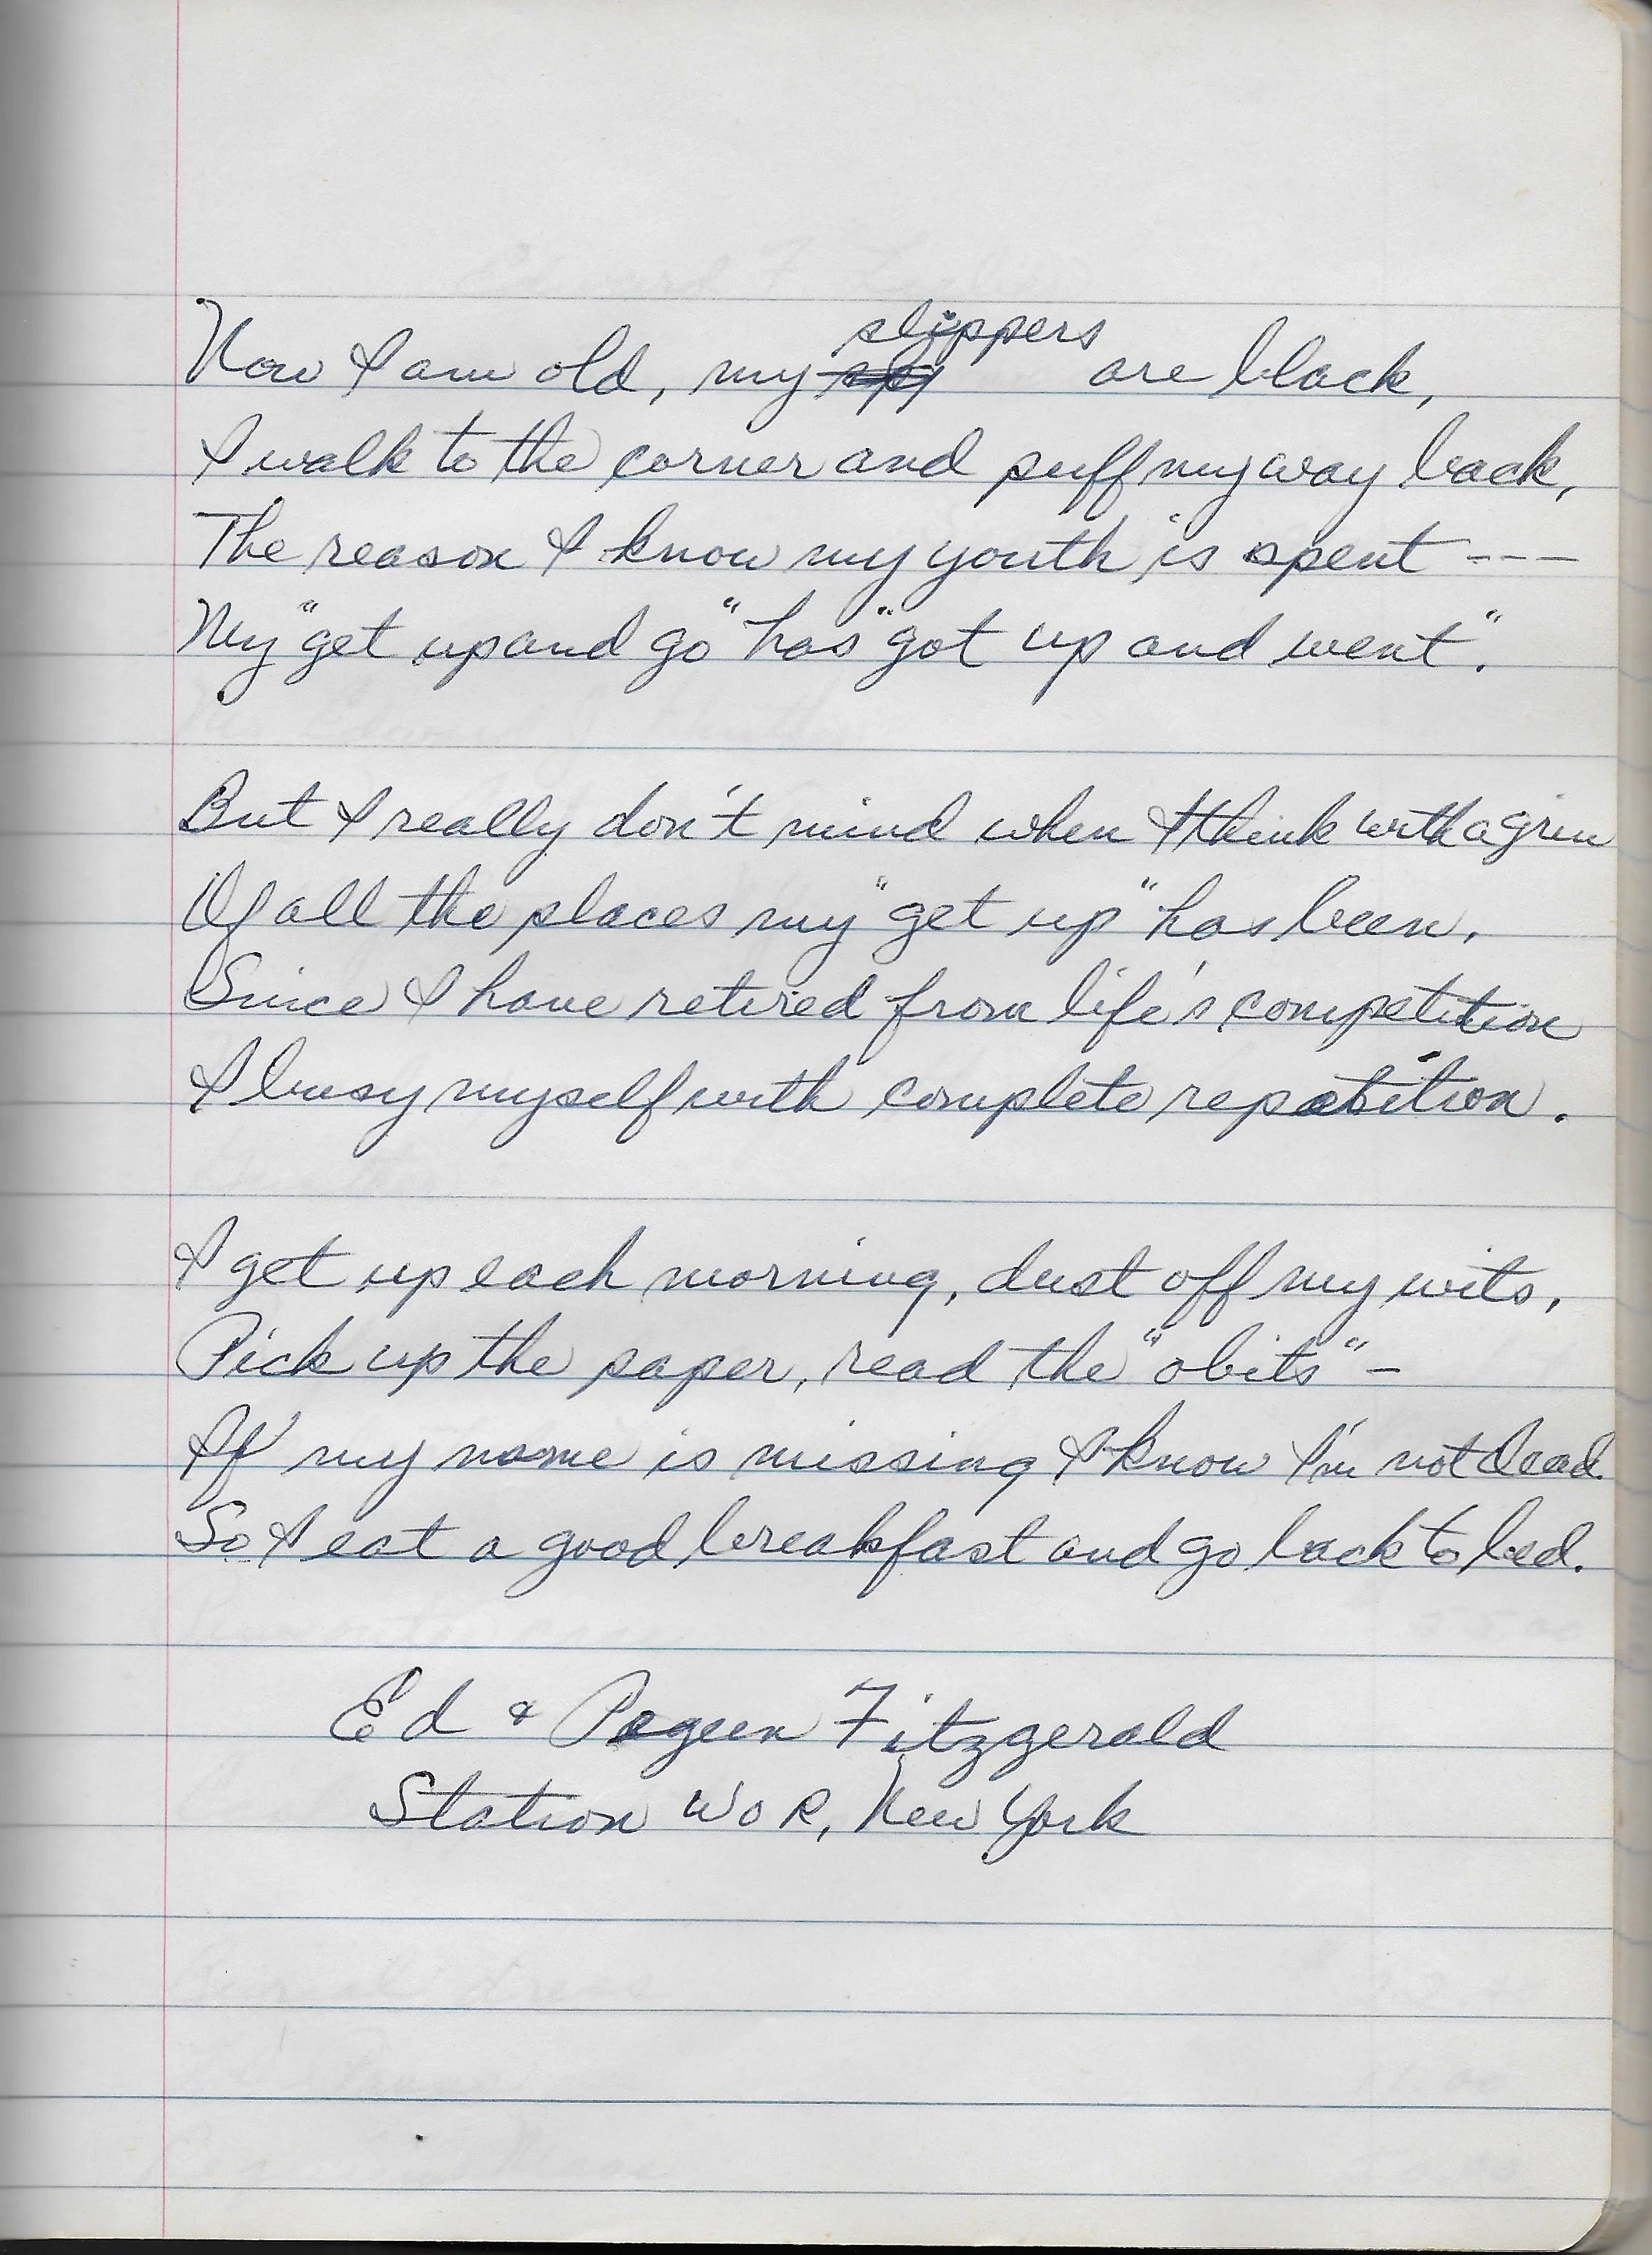 Now I am old, my slippers are black,
I walk to the corner and puff my way back,
The reason I know my youth is spent ---
My "get up and go" has "got up and went".
But I really don't mind when I think with a grin
Of all the places my "get up" has been.
Since I have retired from life's competition
I busy myself with complete repetition.
I get up each morning, dust off my wits,
Pick up the paper, read the "obits" -
If my name is missing I know I'm not dead
So I eat a good breakfast and go back to bed.
Ed & Pegeen Fitzgerald
Station WOR, New York